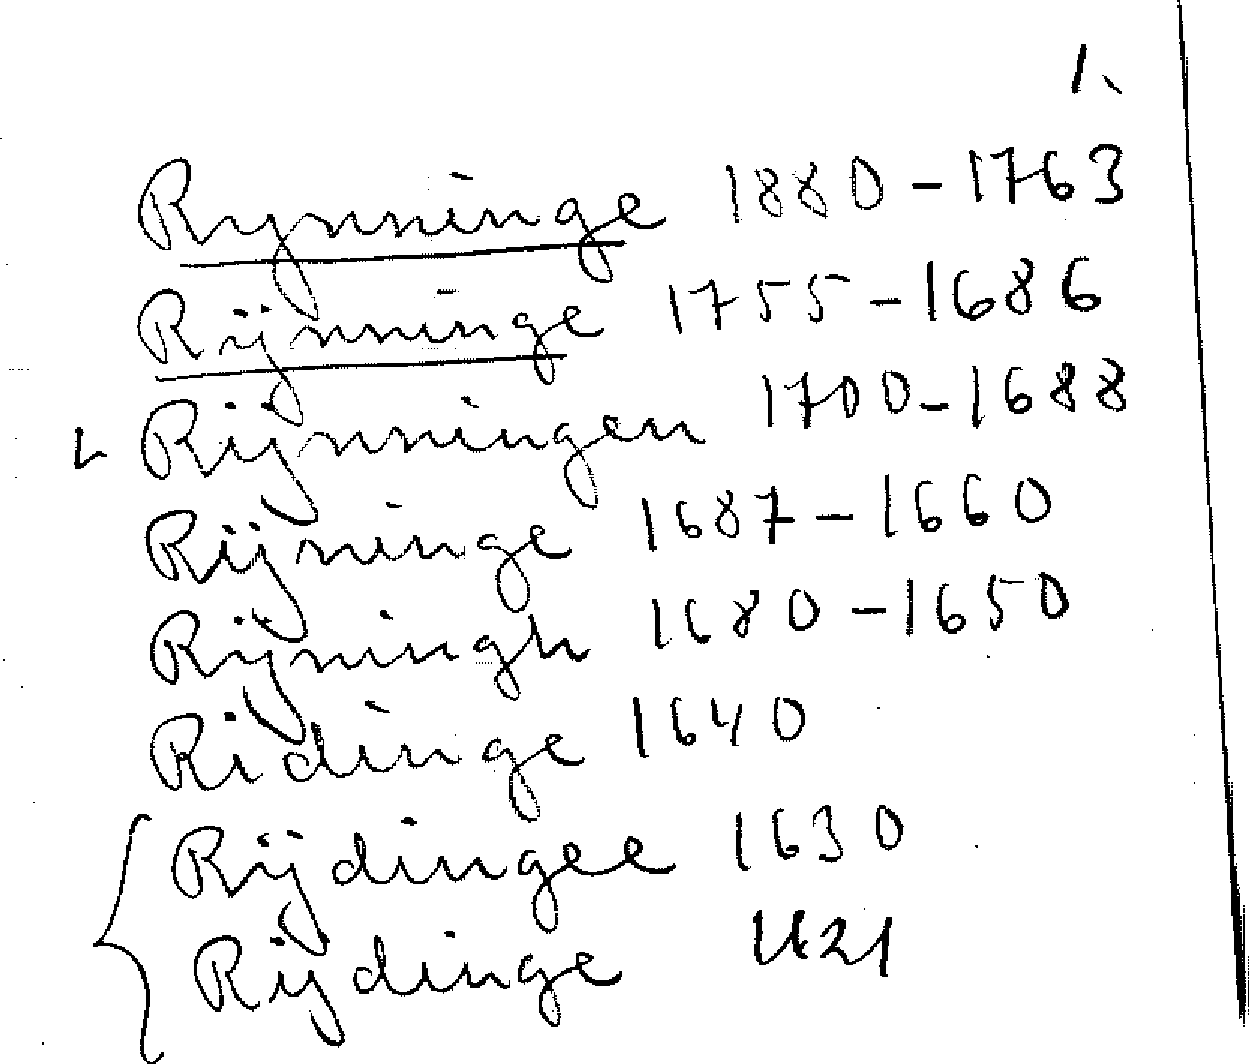 1.
Rynninge 1880-1763
Rijnninge 1755-1686
Rijnningen 1700-1688
Rijninge 1687-1660
Rijningh 1680-1650
Ridinge 1640
Rijdingee 1630
Rijdinge